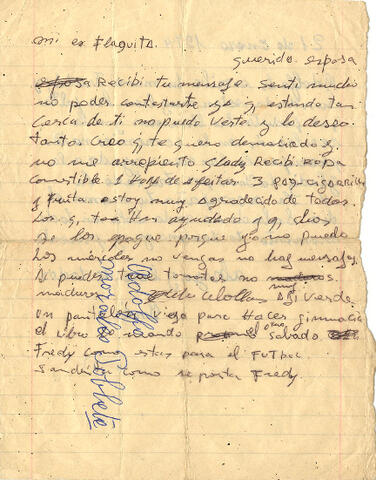 mi ex Flaguita
querida esposa
esposa Recibi tu mensaje Senti mucho
no poder contestarte ya q estando tan
cerca de ti no puedo verte y lo deseo
tanto. Creo q te quero demaciado y
no me arrepiento Glady Recibi Ropa
comestible. 1 Hoja de afeitar. 3 paq. cigarrillos
y fruta estoy muy agradecido de todos
Los q tan Han ayudado y q dios
se los pague porque yo no puedo
Los miércoles no vengas no hay mensajes
si puedes trae tomates no muy
maduros Cebollas Aji verde.
un pantalon viejo para Hacer gimnacia
el libro te mando el otro sabado
Fredy como estas para el FUTbol
Sandra como se porta Fredy.
Rodolfo
Morales Poblete